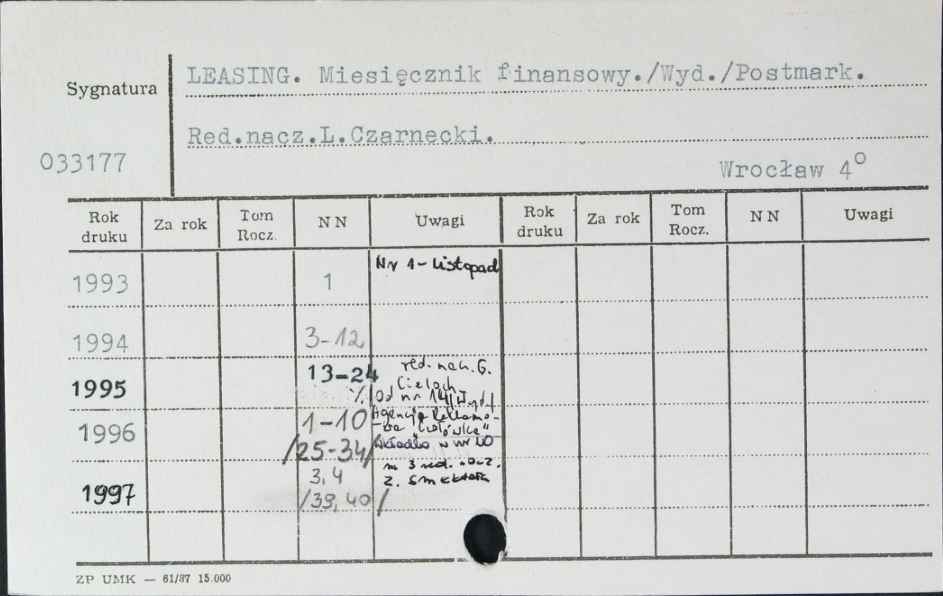 LEASING. Miesięcznik finansowy./Wyd./Postmark.
Sygnatura
Red.nacz.L.Czarnecki.
033177
Wrocław 4°
Rok druku Za rok Tom Rocz. NN Uwagi Rok druku Za rok Tom Rocz. NN Uwagi
1993 1 Nr 1 - listopad
1994 3-12
1995 13-24 red. nacz. G.
Cieloch
od nr 14/
1996 1-10 Agencja Reklamo-
wa
/25-34/
1997 3,4 nr 3 red. nacz.
/39,40/ Z.
ZP UMK — 61/87 15.000